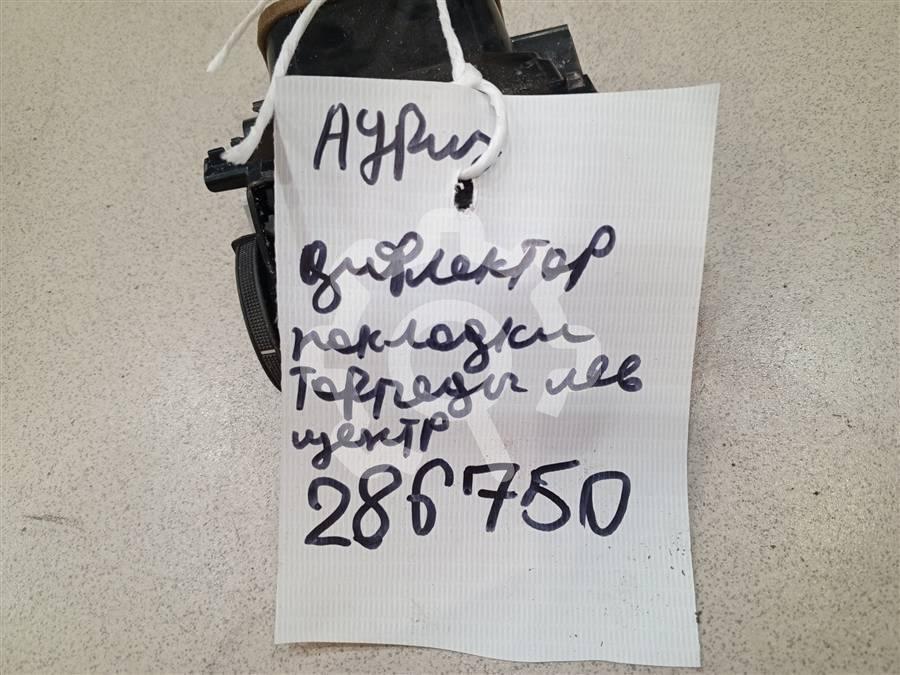 Аурис
Дифлектор
накладки
Торпеды лев
центр
286750